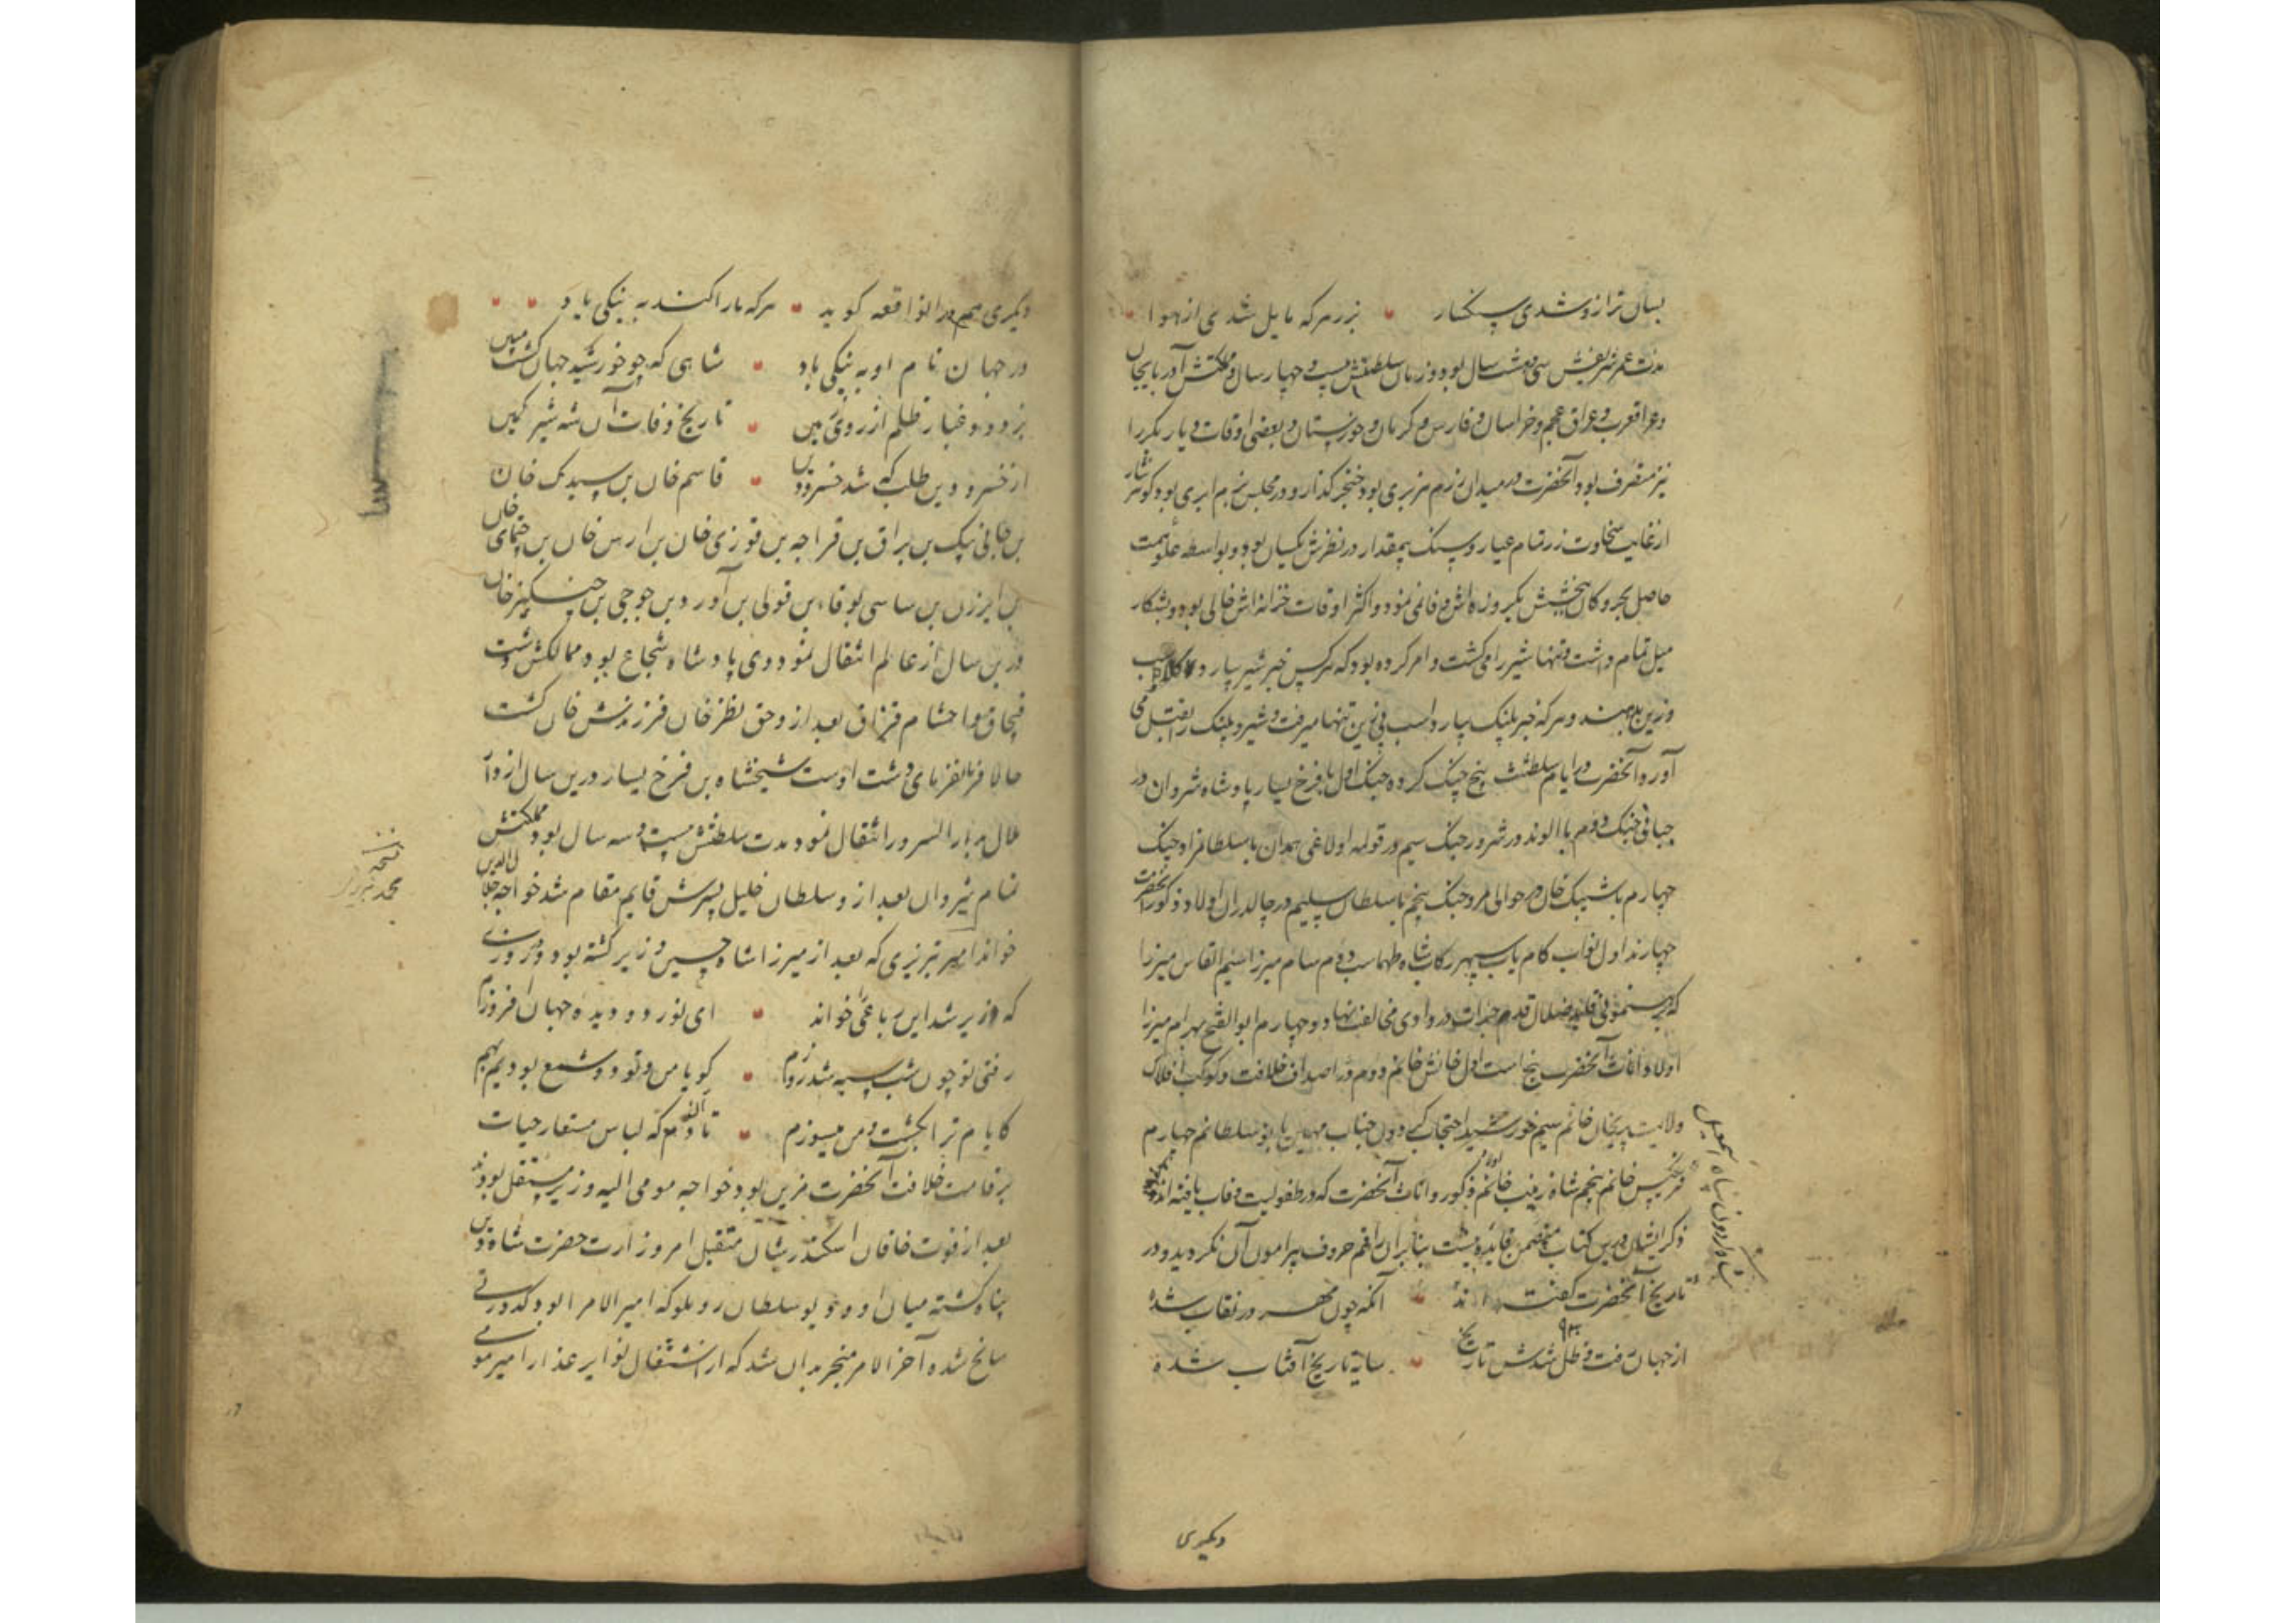 بسان ترازو شدی سنگسار • بزر هر که مایل شدی از هوا •
مدت عمر شریفش سی و هشت سال بود و زمان سلطنتش بیست و چهار سال و مملکتش آذربایجان
و عراق عرب و عراق عجم و خراسان و فارس و کرمان و خوزستان و بعضی اوقات دیار بکر را
نیز متصرف بود و آنحضرت در میدان رزم هزبری بود خنجر گذار و در مجلس بزم ابری بود گوهر نثار
از غایت سخاوت زر تمام عیار و سنگ بیمقدار در نظرش یکسان بود و بواسطه علو همت
حاصل بحر و کان ببخشش یکروزه‌اش وفا نمی نمود و اکثر اوقات خزانه‌اش خالی بود و بشکار
میل تمام داشت و تنها شیر را می کشت و امر کرده بود که هر کس خبر شیر بیارد اسب
و زین بدهند و هر که خبر پلنک بیارد اسب بی زین تنها میرفت و شیر و پلنک را بقتل می
آورد و آنحضرت در ایام سلطنت پنج جنک کرده جنک اول با فرخ یسار پادشاه شروان در
جبانی جنک دوم با الوند در شرور جنک سیم در قولمه اولاغی همدان با سلطانمراد جنک
چهارم با شیبک خان در حوالی مرو جنک پنجم با سلطان سلیم در چالدران اولاد ذکور آنحضرت
چهارند اول نواب کامیاب سپهر رکاب شاه طهماسب دوم سام میرزا سیم القاس میرزا
که برهنمونی قلاید ضلال قدم جرات در وادی مخالفت نهاد و چهارم ابوالفتح بهرام میرزا
اولاد اناث آنحضرت پنج است اول خانش خانم دوم در اصداف خلافت و کوکب افلاک
ولایت پریخان خانم سیم خورشید احتجاب مهین بانو سلطانم چهارم
فرنگیس خانم پنجم شاه زینب خانم ذکور و اناث آنحضرت که در طفولیت وفات یافته اند
ذکر ایشان درین کتاب متضمن فایده نیست بنابران راقم حروف پیرامون آن نگردید و در
تاریخ آنحضرت گفته اند • آنکه چون مهر در نقاب شده
از جهان رفت و ظل شدش تاریخ ۹۳۰ • سایه تاریخ آفتاب شده
دیگری
دیگری هم در انواقعه گوید • هر که ما را کند به نیکی یاد • •
در جهان نام او به نیکی باد • شاهی که چو خورشید جهان گشت مبین
بزدود غبار ظلم از روی زمین • تاریخ وفات آن شه شیر کمین
از خسرو دین طلب که شد خسرو دین • قاسم خان بن سیدک خان
بن جانی بیک بن براق بن قراجه بن قوزی خان بن ارس خان بن چمتای خان
بن ایرزن بن ساسی بوقا بن قولی بن آورد بن جوجی بن چنگیز خان
درین سال از عالم انتقال نمود وی پادشاه شجاع بود و ممالکش دشت
قبچاق و احشام قزاق بعد از و حق نظر خان فرزندش خان گشت
حالا فرمانفرمای دشت اوست شیخشاه بن فرخ یسار درین سال از دار
ملال بدار السرور انتقال نمود مدت سلطنتش بیست و سه سال بود و مملکتش
تمام شیروان بعد از و سلطان خلیل پسرش قایم مقام شد خواجه جلال الدین
خواند امیر تبریزی که بعد از میرزا شاه حسین وزیر گشته بود در روزی
که وزیر شد این رباعی خواند • ای نور دو دیده جهان افروزم
رفتی تو چون شب سیه شد روزم • گویا من و تو دو شمع بودیم بهم
کایام ترا بکشت و من میسوزم • تا آندم که لباس مستعار حیات
بر قامت خلافت آنحضرت مزین بود خواجه مومی الیه وزیر مستقل بود
بعد از فوت خاقان اسکندر شان متقبل امر وزارت حضرت شاه دین
پناه گشته میان او و دیو سلطان روملو که امیر الامرا بود کدورتی
سانح شده آخر الامر منجر بدان شد که از اشتعال نوایر عذار امیر موی
نسخه
محمد تبریزی